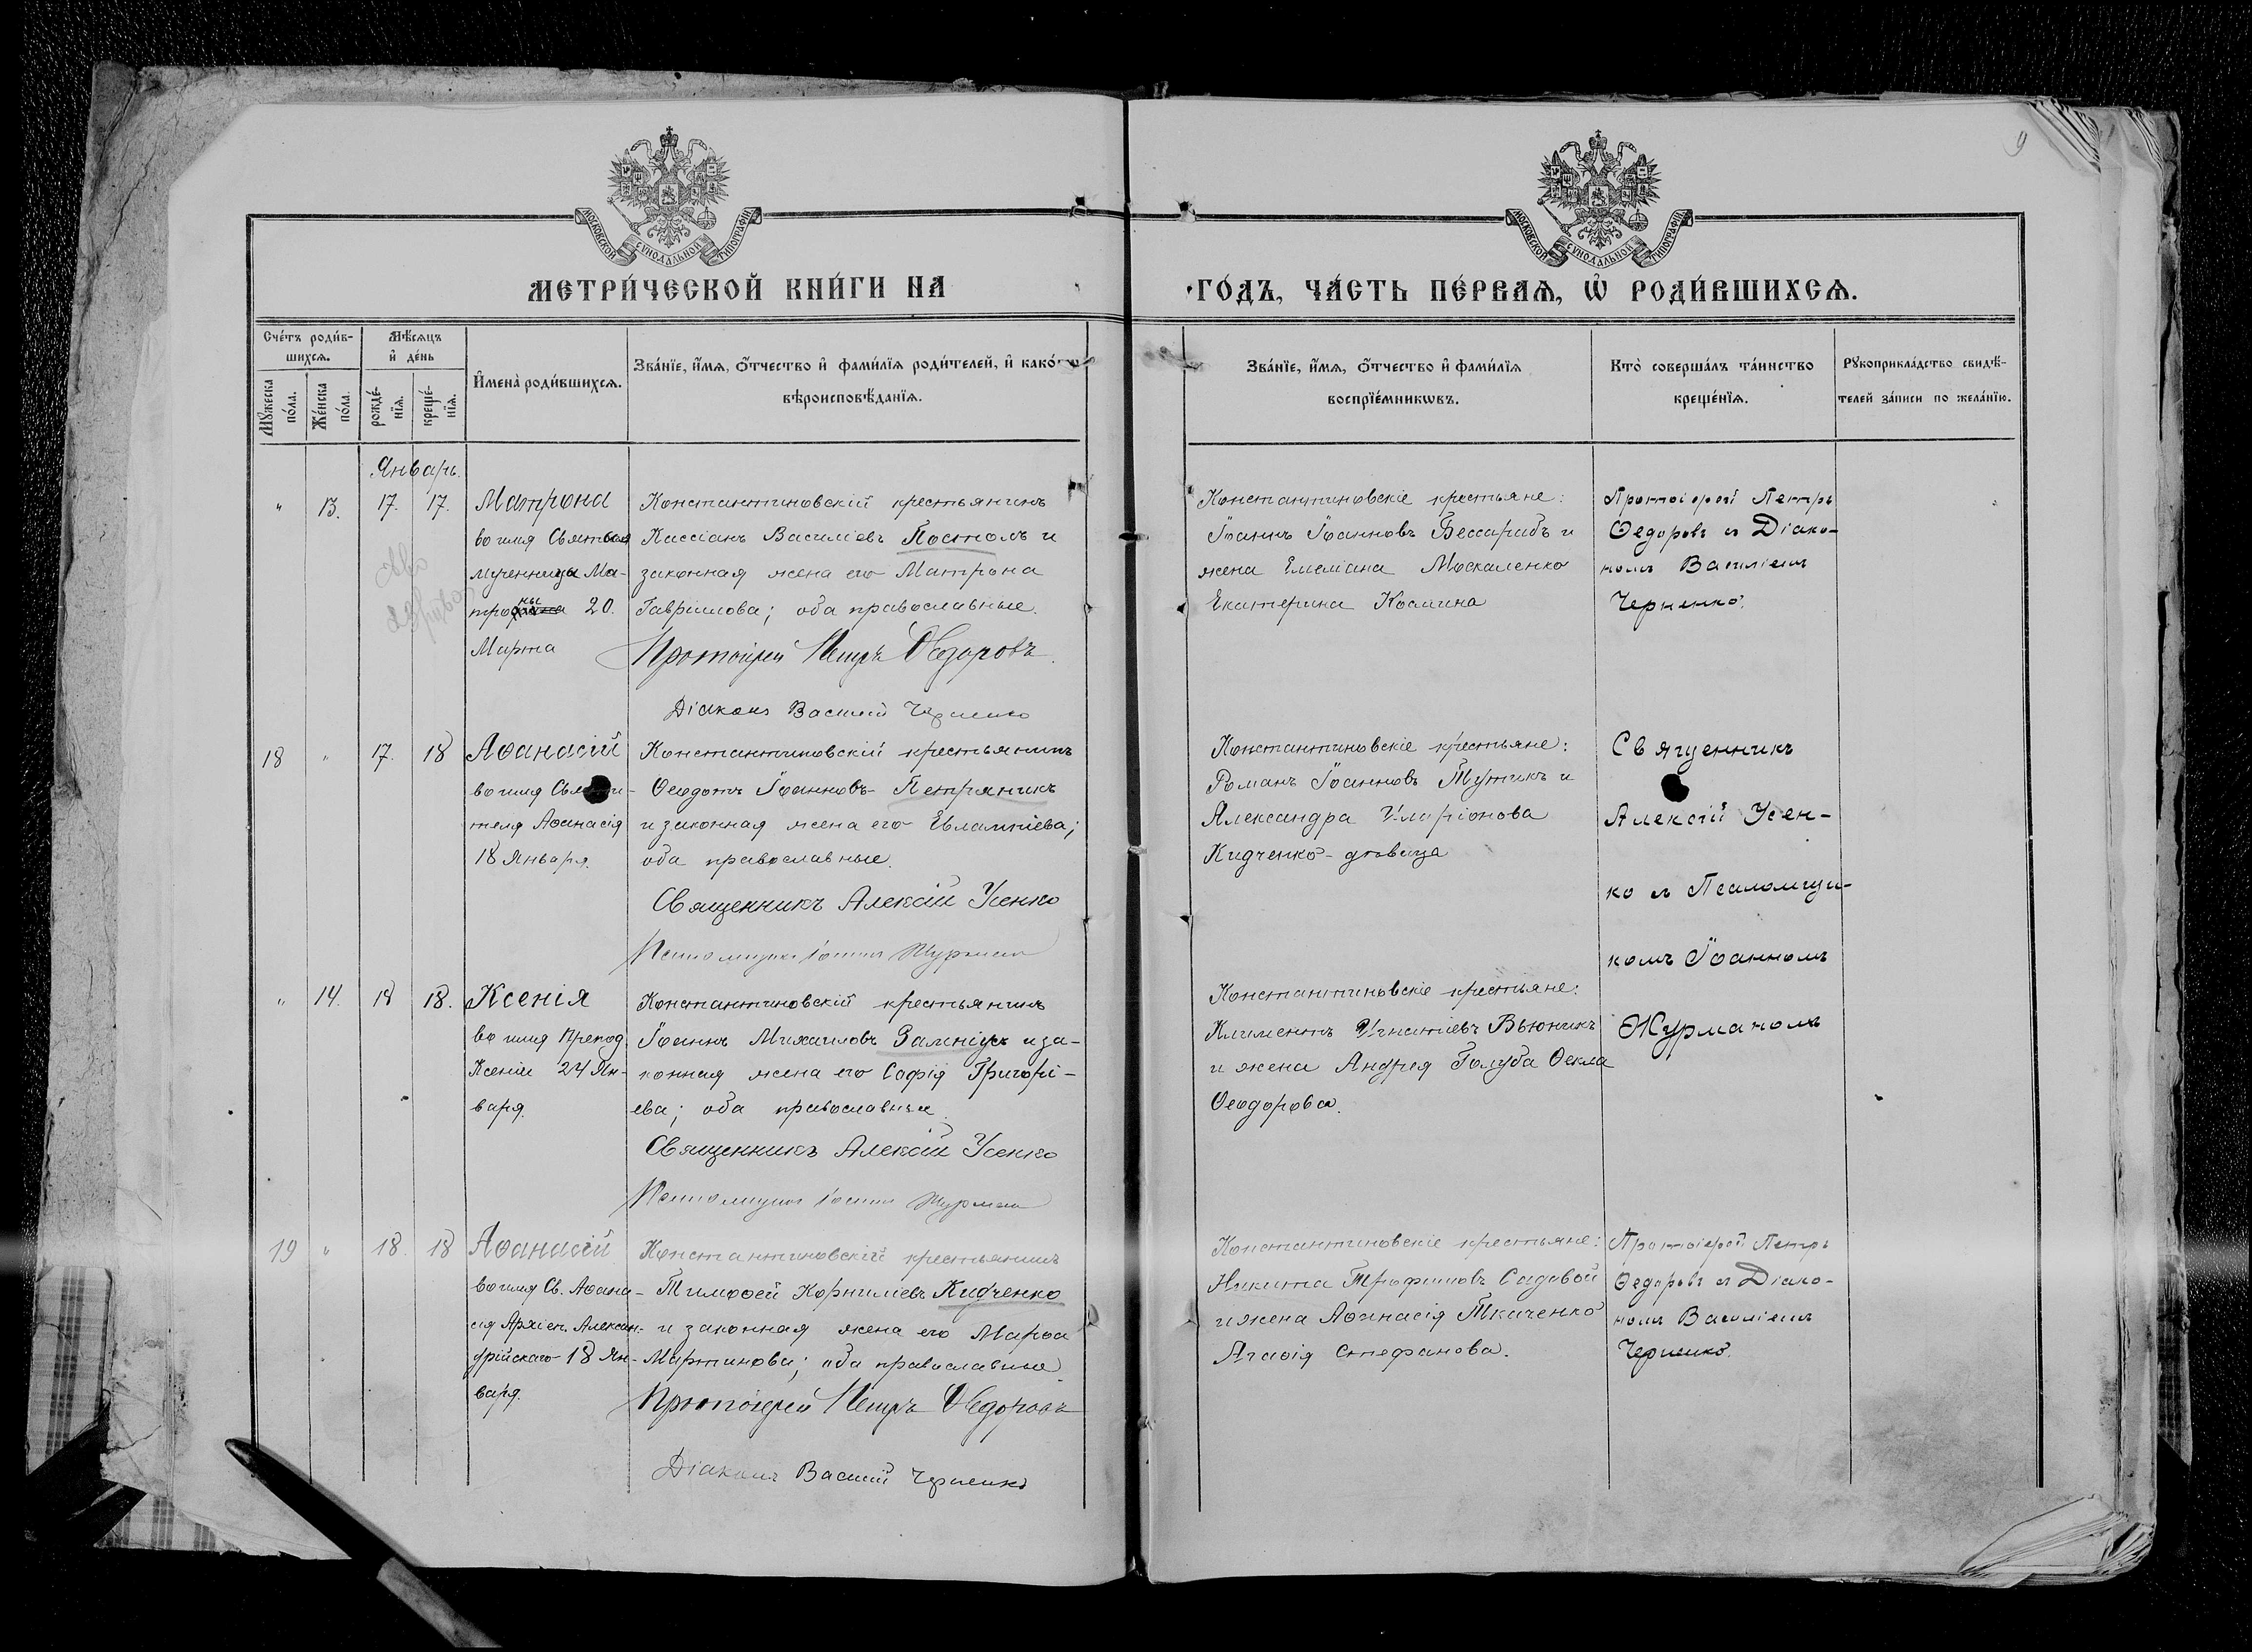 9
МОСКОВСКОЙ СѴНОДАЛЬНОЙ ТИПОГРАФІИ
МОСКОВСКОЙ СѴНОДАЛЬНОЙ ТИПОГРАФІИ
МЕТРИ́ЧЕСКОЙ КНИ́ГИ НА
ГО́ДЪ, ЧА́СТЬ ПЕ́РВАѦ, Ѡ҆ РОДИ́ВШИХСѦ.
Сче́тъ роди́в-
шихсѧ.
Мѣ́сѧцъ
и҆ де́нь
Мꙋ́жеска
по́ла.
Же́нска
по́ла.
рожде́-
нїѧ.
креще́-
нїѧ.
И҆мена̀ роди́вшихсѧ.
Зва́нїе, и҆́мѧ, ѻ҆́тчество и҆ фами́лїѧ роди́телей, и҆ како́гѡ
вѣроисповѣ́данїѧ.
Зва́нїе, и҆́мѧ, ѻ҆́тчество и҆ фами́лїѧ
воспрїе́мникѡвъ.
Кто̀ соверша́лъ та́инство
креще́нїѧ.
Рꙋкоприкла́дство свидѣ́-
телей за́писи по жела́нїю.
Январь.
" 13. 17. 17. Матрона
во имя Святыя
мученницы Ма-
троны 20.
Марта
Константиновскій крестьянинъ
Кассіанъ Василіевъ Постолъ и
законная жена его Матрона
Гавриилова; оба православные.
Протоіерей Петръ Ѳедоровъ.
Діаконъ Василій Черненко
Константиновскіе крестьяне:
Іоаннъ Іоанновъ Бессарабъ и
жена Емеліана Москаленко
Екатерина Космина
Протоіерей Петръ
Ѳедоровъ съ Діако-
номъ Василіемъ
Черненко.
18 " 17. 18 Аѳанасій
во имя Святи-
теля Аѳанасія
18 Января.
Константиновскій крестьянинъ
Ѳеодотъ Іоанновъ Петряникъ
и законная жена его Евлампіева;
оба православные.
Священникъ Алексій Усенко
Псаломщикъ Іоаннъ Журманъ
Константиновскіе крестьяне:
Романъ Іоанновъ Тутикъ и
Александра Иларіонова
Кидченко-дѣвица
Священникъ
Алексій Усен-
ко съ Псаломщи-
комъ Іоанномъ
Журманомъ
" 14. 18 18. Ксенія
во имя Препод.
Ксеніи 24 Ян-
варя.
Константиновскій крестьянинъ
Іоаннъ Михаиловъ Замніусъ и за-
конная жена его Софія Григорі-
ева; оба православные.
Священникъ Алексій Усенко
Псаломщикъ Іоаннъ Журманъ
Константиновскіе крестьяне:
Климентъ Игнатіевъ Вьюникъ
и жена Андрея Голуба Ѳекла
Ѳеодорова.
19 " 18. 18 Аѳанасій
во имя Св. Аѳана-
сія Архіеп. Алексан-
дрійскаго 18 Ян-
варя.
Константиновскій крестьянинъ
Тимоѳей Корниліевъ Кидченко
и законная жена его Марѳа
Мартинова; оба православные.
Протоіерей Петръ Ѳедоровъ
Діаконъ Василій Черненко
Константиновскіе крестьяне:
Никита Трофимовъ Садовой
и жена Аѳанасія Ткаченко
Агаѳія Стефанова.
Протоіерей Петръ
Ѳедоровъ съ Діако-
номъ Василіемъ
Черненко.